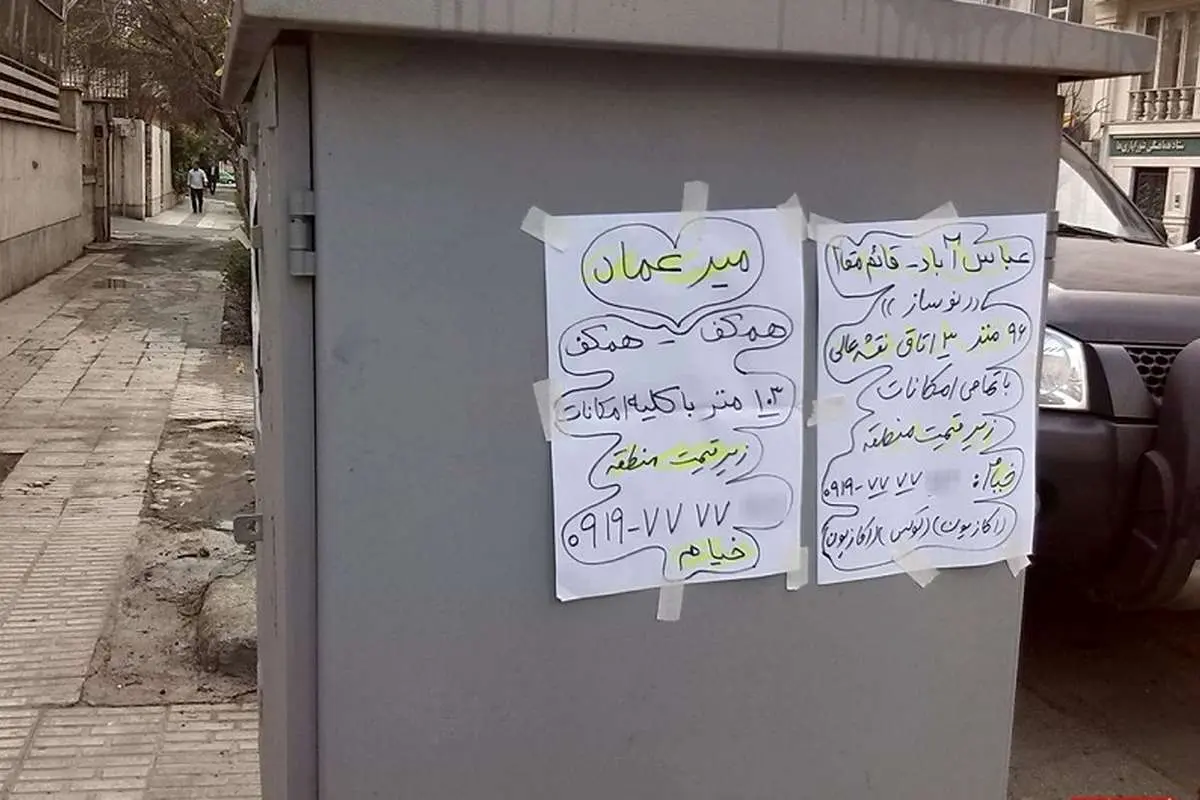 میرعماد
همکف - همکف
۱۰۳ متر با کلیه امکانات
زیر قیمت منطقه
۰۹۱۹-۷۷ ۷۷
خیام
عباس آباد - قائم مقام
((نوساز))
۹۶ متر ۳ اتاق نقشه عالی
با تمامی امکانات
زیر قیمت منطقه
خیام: ۰۹۱۹-۷۷ ۷۷
(اکازیون) (لوکس) (اکازیون)
ستاد هماهنگی شورایاری‌ها